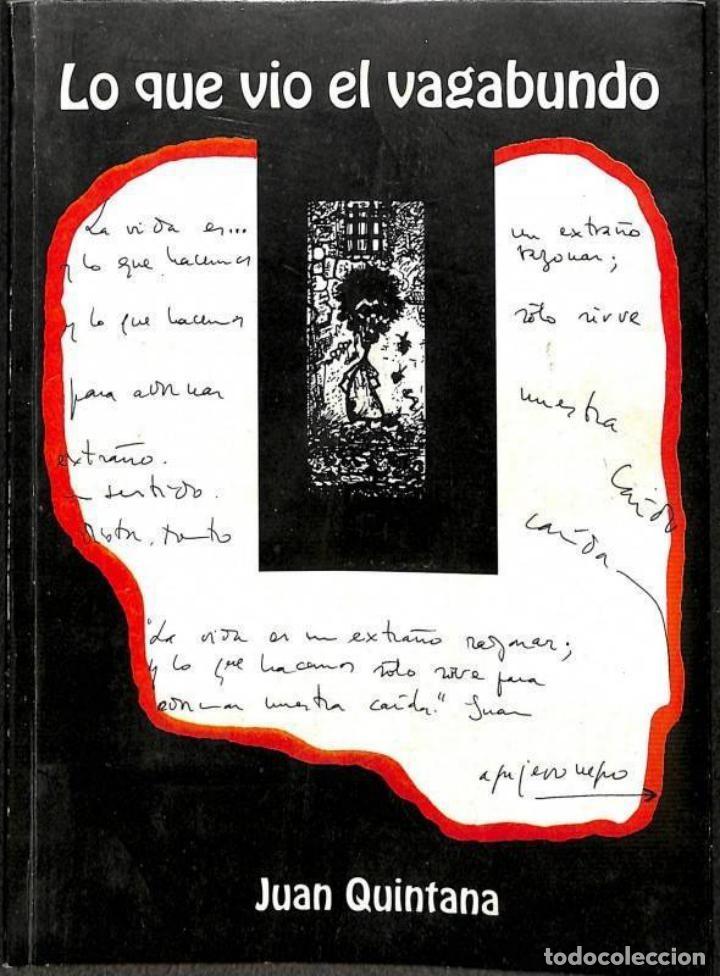 Lo que vio el vagabundo
La vida es... un extraño
y lo que hacemos razonar;
y lo que hacemos sólo sirve
para adornar nuestra
extraño. caída
sentido. caída
tanto
"La vida es un extraño razonar;
y lo que hacemos sólo sirve para
adornar nuestra caída." Juan
agujero negro
Juan Quintana
todocoleccion